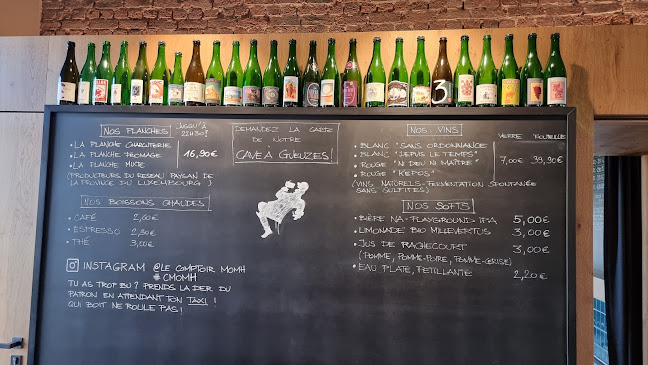 NOS PLANCHES
JUSQU'À 22H30!
• LA PLANCHE CHARCUTERIE
• LA PLANCHE FROMAGE
• LA PLANCHE MIXTE
16,90€
(PRODUCTEURS DU RESEAU PAYSAN DE
LA PROVINCE DU LUXEMBOURG)
NOS BOISSONS CHAUDES
• CAFÉ 2,60€
• ESPRESSO 2,30€
• THÉ 3,00€
INSTAGRAM @LE COMPTOIR MOMH
# CMOMH
TU AS TROP BU? PRENDS LA DER DU
PATRON EN ATTENDANT TON TAXI!
QUI BOIT NE ROULE PAS!
DEMANDEZ LA CARTE
DE NOTRE
CAVE A GUEUZES!
NOS VINS
VERRE BOUTEILLE
• BLANC "SANS ORDONNANCE"
• BLANC "DEPUIS LE TEMPS"
• ROUGE "NI DIEU NI MAÎTRE"
• ROUGE "KEPOS"
7,00€ 39,90€
(VINS NATURELS-FERMENTATION SPONTANÉE
SANS SULFITES)
NOS SOFTS
• BIÈRE NA-PLAYGROUND IPA 5,00€
• LIMONADE BIO MILLEVERTUS 3,00€
• JUS DE RACHECOURT 3,00€
(POMME, POMME-POIRE, POMME-CERISE)
• EAU PLATE, PETILLANTE 2,20€
3